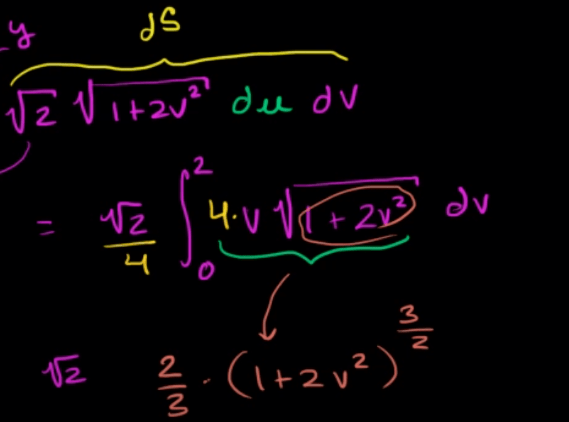 y dS
√2 √(1+2v²) du dv
= √2/4 ∫₀² 4·v √(1+2v²) dv
√2 2/3 · (1+2v²)^(3/2)